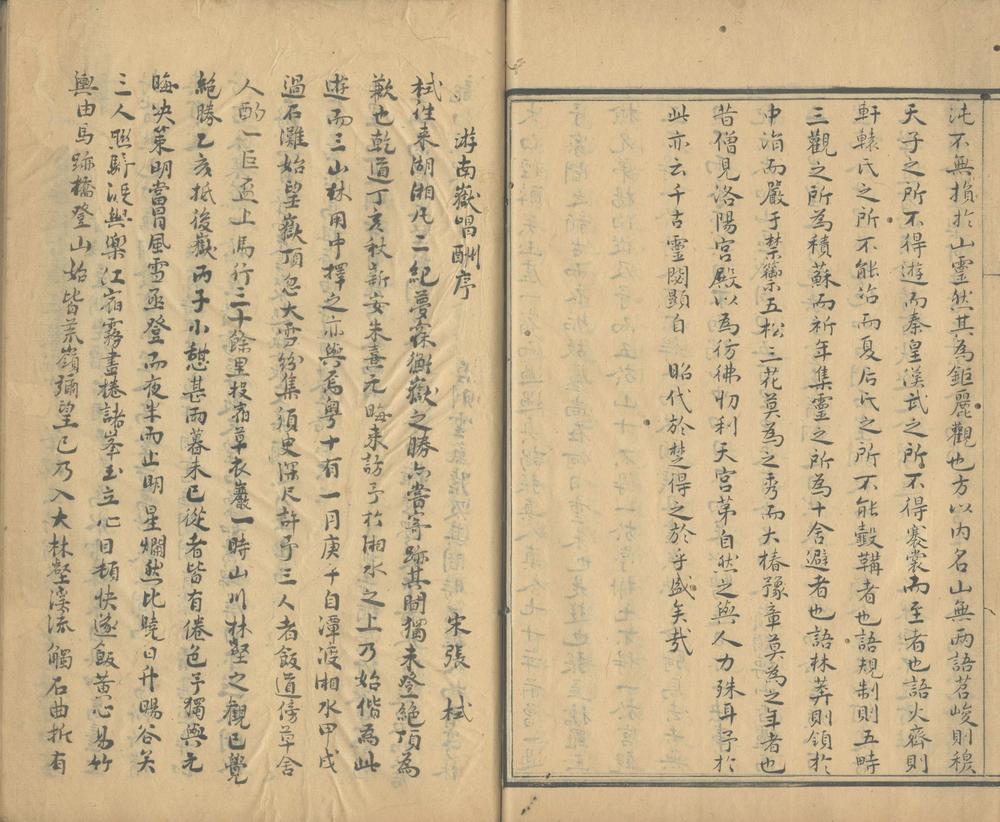 沌不無損於山靈然其為鉅麗觀也方以內名山無兩語苕峻則穆
天子之所不得遊而秦皇漢武之所不得褰裳而至者也語火齊則
軒轅氏之所不能治而夏后氏之所不能轂鞲者也語規制則五畤
三觀之所為積蘇而祈年集靈之所為十舍避者也語林莽則領於
中涓而嚴于禁籞五松三花莫為之秀而大椿豫章莫為之年者也
昔僧見洛陽宮殿以為彷彿忉利天宮第自然之與人力殊耳予於
此亦云千古靈閟顯自 昭代於楚得之於乎盛矣哉
游南嶽唱酬序 宋張栻
栻往來湖湘凡二紀夢寐衡嶽之勝亦嘗寄跡其間獨未登絕頂為
歉也乾道丁亥秋新安朱熹元晦來訪予於湘水之上乃始偕為此
遊而三山林用中擇之亦與焉粵十有一月庚午自潭渡湘水甲戌
過石灘始望嶽頂忽大雪紛集須臾深尺許予三人者飯道傍草舍
人酌一巨盃上馬行三十餘里投宿草衣巖一時山川林壑之觀已覺
絕勝乙亥抵後嶽丙子小憩甚雨暮未已從者皆有倦色予獨與元
晦决策明當冒風雪亟登而夜半雨止明星爛然比曉日升暘谷矣
三人聯騎渡興樂江宿霧盡捲諸峯玉立心目頓快遂飯黃心易竹
輿由馬跡橋登山始皆荒嶺彌望已乃入大林壑溪流觸石曲折有